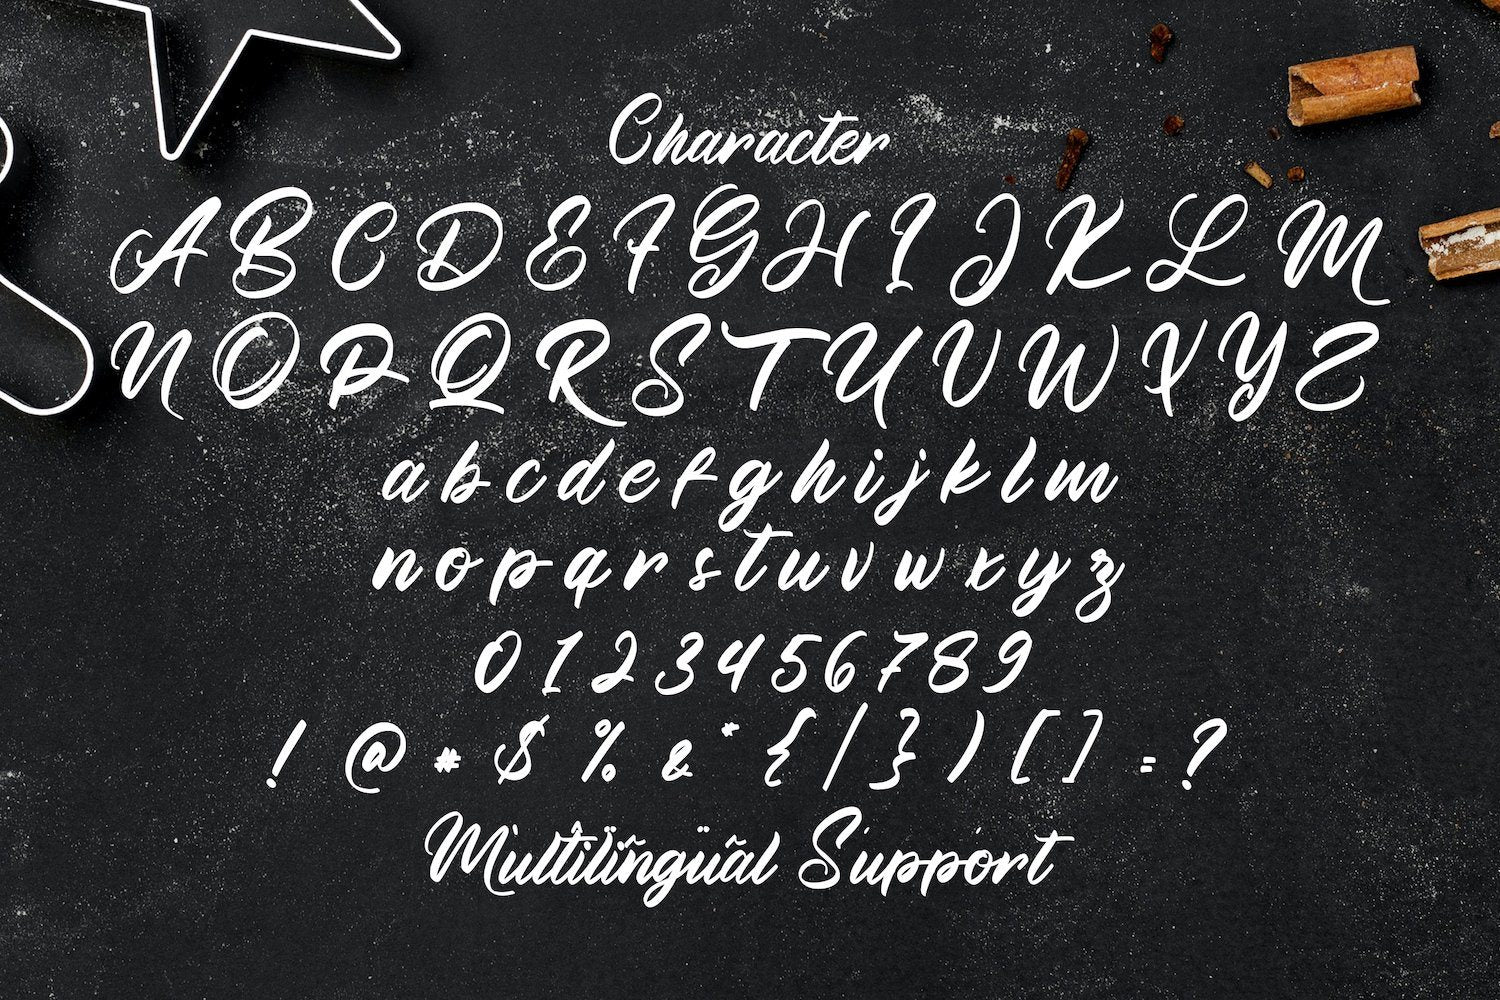 Character
A B C D E F G H I J K L M
N O P Q R S T U V W X Y Z
a b c d e f g h i j k l m
n o p q r s t u v w x y z
0 1 2 3 4 5 6 7 8 9
! @ # $ % & * { | } ) [ ] = ?
Mùltîlïñgüãl Süppórt